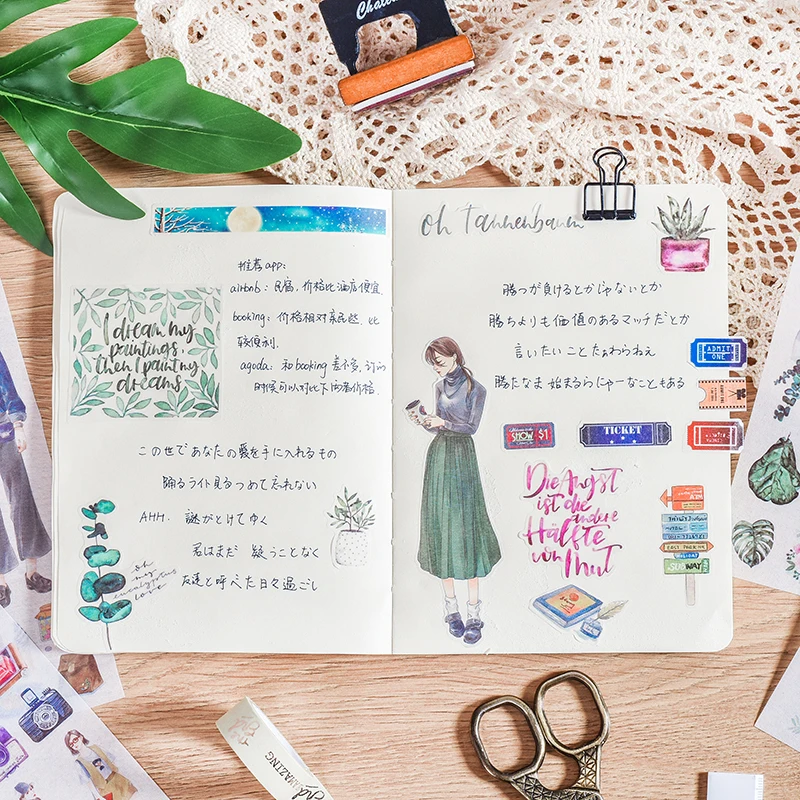 推荐app:
airbnb: 民宿,价格比酒店便宜
booking: 价格相对亲民些,比
较便利.
agoda: 和booking差不多,订的
时候可以对比下的看价格.
I dream my
paintings,
then I paint my
dreams
この世であなたの愛を手に入れるもの
踊るライト見るつめて忘れない
AHH. 謎がとけてゆく
君はまだ 疑うことなく
友達と呼べた日々過ごし
oh
my
eucalyptus
love
oh Tannenbaum
勝つが負けるとかじゃないとか
勝ちよりも価値のあるマッチだとか
言いたいこと
勝たなま 始まるらにゃーなこともある
ADMIT
ONE
SHOW $1
TICKET
Die Angst
ist die
andere
Hälfte
von Mut
EAST PARKING
HOLIDAY
SUBWAY
AMAZING